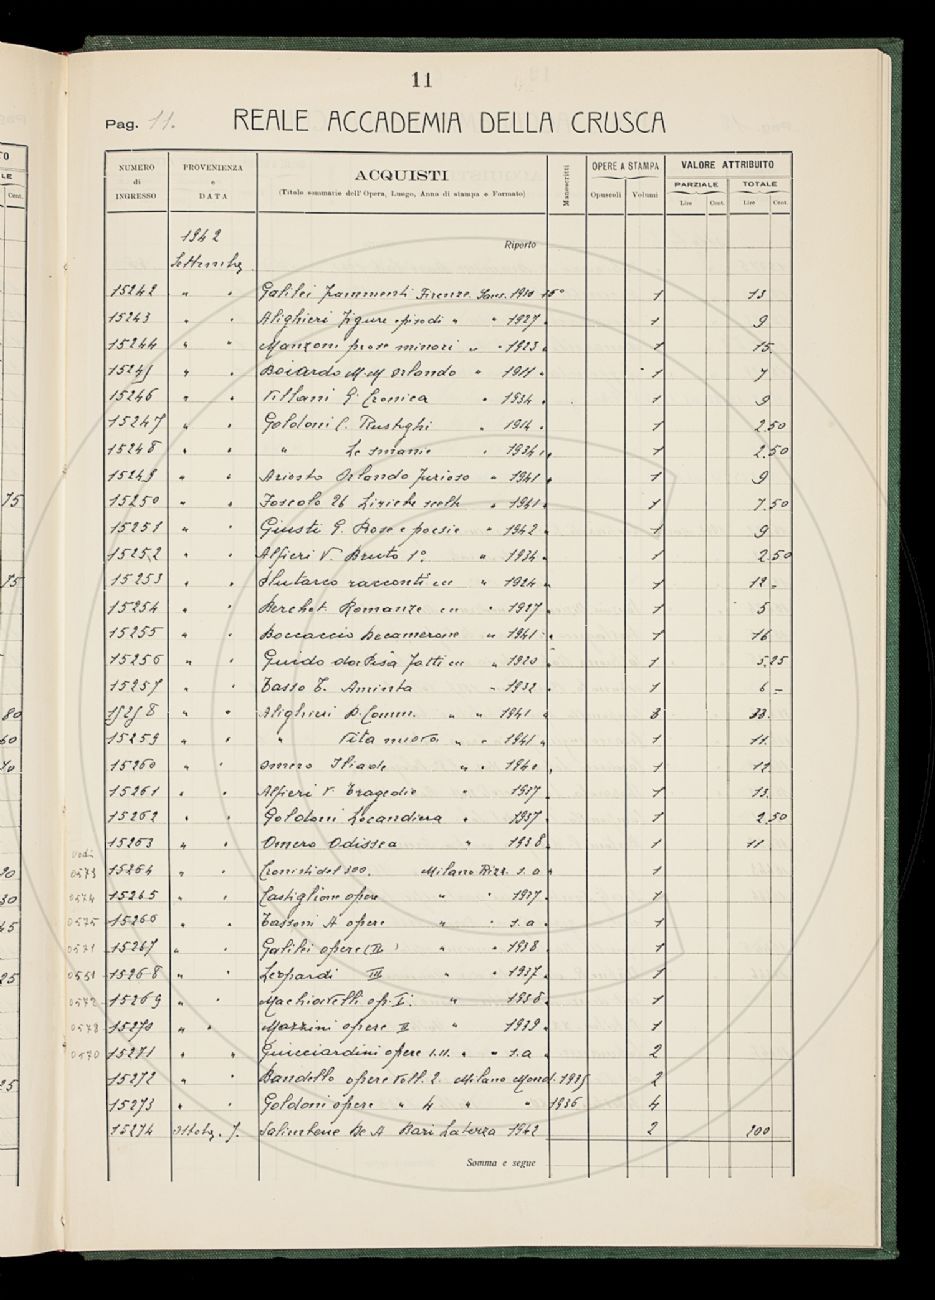 11
Pag. 11. REALE ACCADEMIA DELLA CRUSCA
NUMERO di INGRESSO PROVENIENZA e DATA ACQUISTI (Titolo sommario dell'Opera, Luogo, Anno di stampa e Formato) Manoscritti OPERE A STAMPA Opuscoli Volumi VALORE ATTRIBUITO PARZIALE Lire Cent. TOTALE Lire Cent.
1942 Riporto
Settembre
15242 " " Galilei Frammenti Firenze Sans. 1930 16° 1 13
15243 " " Alighieri Figure episodi " " 1927 1 9
15244 " " Manzoni prose minori " " 1923 1 15
15245 " " Boiardo M. M Orlando " 1911 1 7
15246 " " Villani G. Cronica " 1934 1 9
15247 " " Goldoni C. Rusteghi " 1914 1 2.50
15248 " " " Le smanie " 1934 1 2.50
15249 " " Ariosto Orlando Furioso " 1941 1 9
15250 " " Foscolo Liriche scelte " 1941 1 7.50
15251 " " Giusti G. Prose e poesie " 1942 1 9
15252 " " Alfieri V. Bruto 1°. " 1934 1 2.50
15253 " " Plutarco racconti ecc " 1924 1 12 -
15254 " " Berchet Romanze ecc " 1927 1 5
15255 " " Boccaccio Decamerone " 1941 1 16
15256 " " Guido da Pisa Fatti ecc " 1920 1 5.25
15257 " " Tasso T. Aminta " 1932 1 6 -
15258 " " Alighieri D. Comm. " " 1941 3 33.
15259 " " " Vita nuova " " 1941 1 11
15260 " " Omero Iliade " " 1940 1 12
15261 " " Alfieri V. Tragedie " 1937 1 13
15262 " " Goldoni Locandiera " 1937 1 2.50
15263 " " Omero Odissea " 1938 1 11
vedi
0573 15264 " " Cronisti del 300. Milano Rizz. s. a 1
0574 15265 " " Castiglione opere " " 1937 1
0575 15266 " " Tassoni A opere " " s. a 1
0571 15267 " " Galilei opere (II) " " 1938 1
0551 15268 " " Leopardi III " " 1937 1
0572 15269 " " Machiavelli op. I. " 1938 1
0578 15270 " " Mazzini opere II " 1939 1
0570 15271 " " Guicciardini opere I.II. " " s. a 2
15272 " " Bandello opere voll. 2. Milano Mond. 1935 2
15273 " " Goldoni opere " 4 " " 1936 4
15274 Ottobr. 7. Salimbene De A Bari Laterza 1942 2 200
Somma e segue